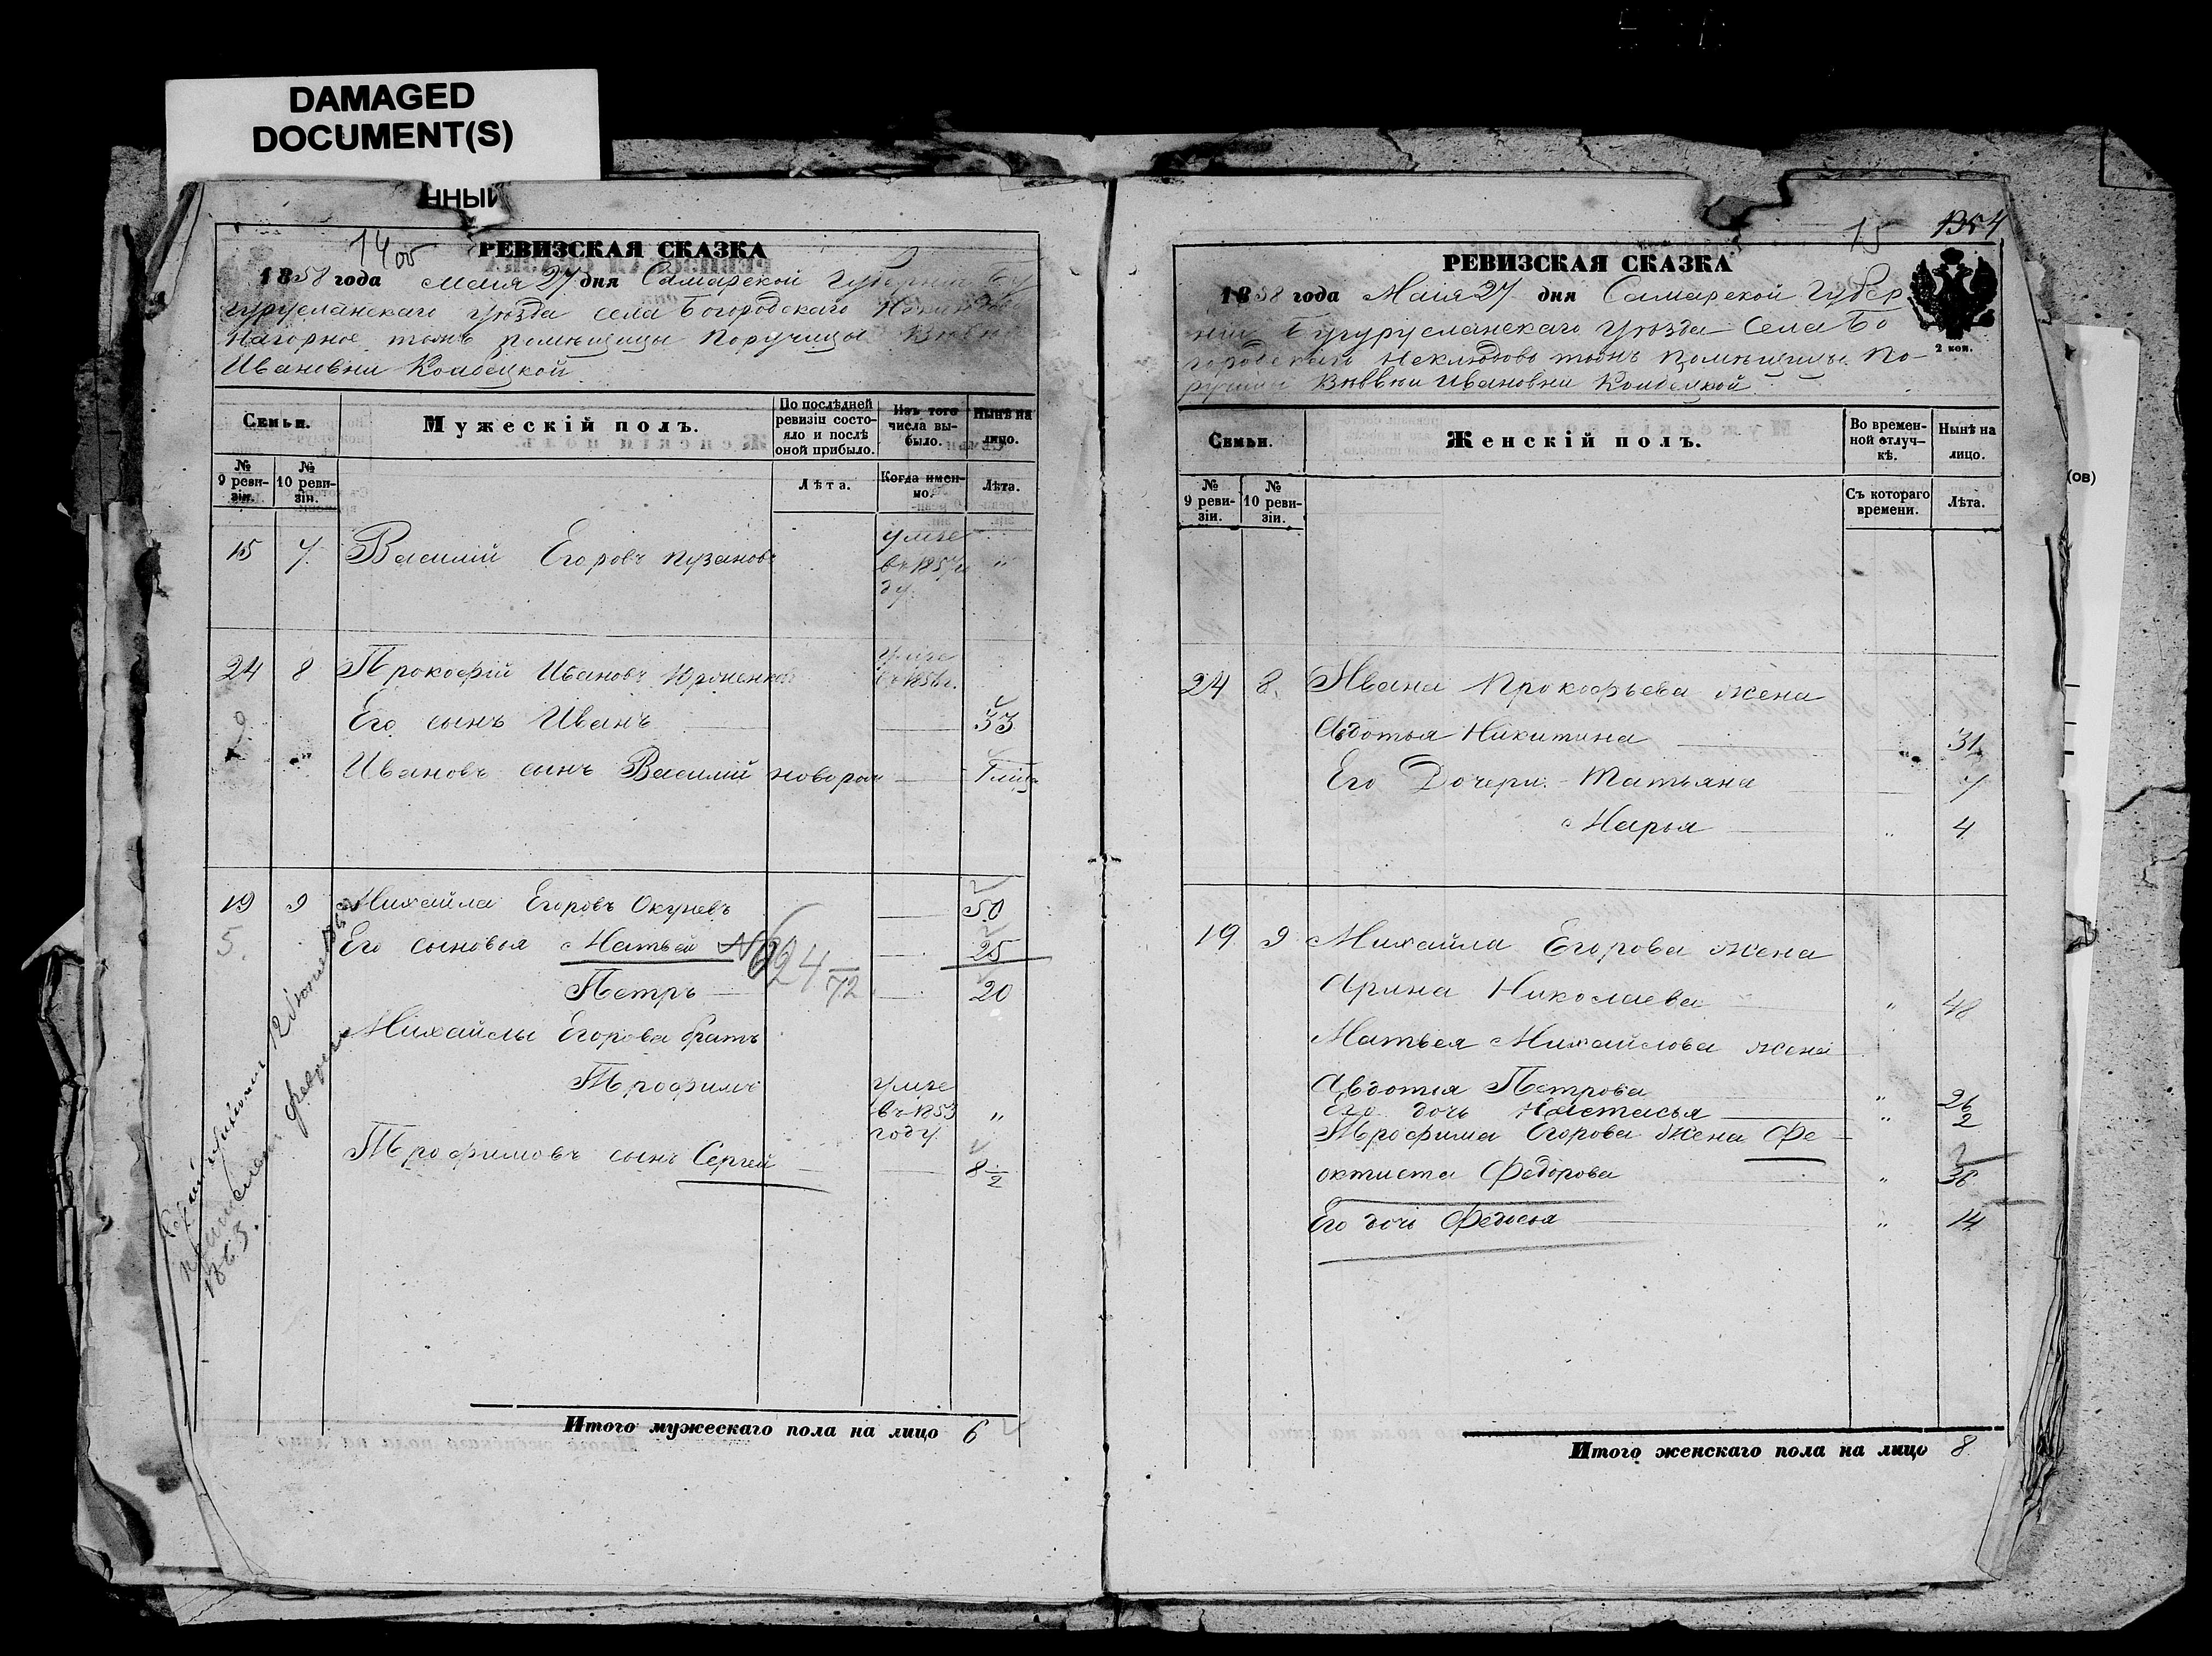 DAMAGED
DOCUMENT(S)
ННЫЙ
14 об
РЕВИЗСКАЯ СКАЗКА
1858 года Маия 27 дня Самарской Губернии Бу
гурусланскаго уѣзда села Богородскаго Неклюдово
Нагорное тожъ помѣщицы Поручицы
Ивановны
Семьи.
Мужескій полъ.
По послѣдней ревизіи состояло и послѣ оной прибыло.
Изъ того числа выбыло.
Нынѣ на лицо.
№ 9 ревизіи.
№ 10 ревизіи.
Лѣта.
Когда именно.
Лѣта.
15 7. Василій Егоровъ Пузановъ умре въ 1857 го
ду
24 8 Прокофій Ивановъ умре в 1856 г.
Его сынъ Иванъ 33
Ивановъ сынъ Василій новорож
19 9 Михайла Егоровъ Окуневъ 50
5. Его сыновья Матвей № 624 25
Петръ 72 20
Михайлы Егорова братъ
Трофимъ умре
въ 1853
году
Трофимовъ сынъ Сергей 8 1/2
февраля
1863.
Итого мужескаго пола на лицо 6
15 1354
РЕВИЗСКАЯ СКАЗКА
2 коп.
1858 года Маія 27 дня Самарской Губер
нии Бугурусланскаго уѣзда Села Бо
городскаго Неклюдово тожъ помѣщицы По-
ручицы Ивановны
Семьи.
Женскій полъ.
Во временной отлучкѣ.
Нынѣ на лицо.
№ 9 ревизіи.
№ 10 ревизіи.
Съ котораго времени.
Лѣта.
24 8. Ивана Прокофьева жена
Авдотья Никитина 31
Его Дочери Татьяна 7
Марья 4
19 9 Михайла Егорова жена
Арина Николаева 48
Матвея Михайлова жена
Авдотья Петрова 26
Его дочь Настасья 2
Трофима Егорова жена Фе-
октиста Федорова 36
Его дочь Федосья 14
Итого женскаго пола на лицо 8
(ОВ)